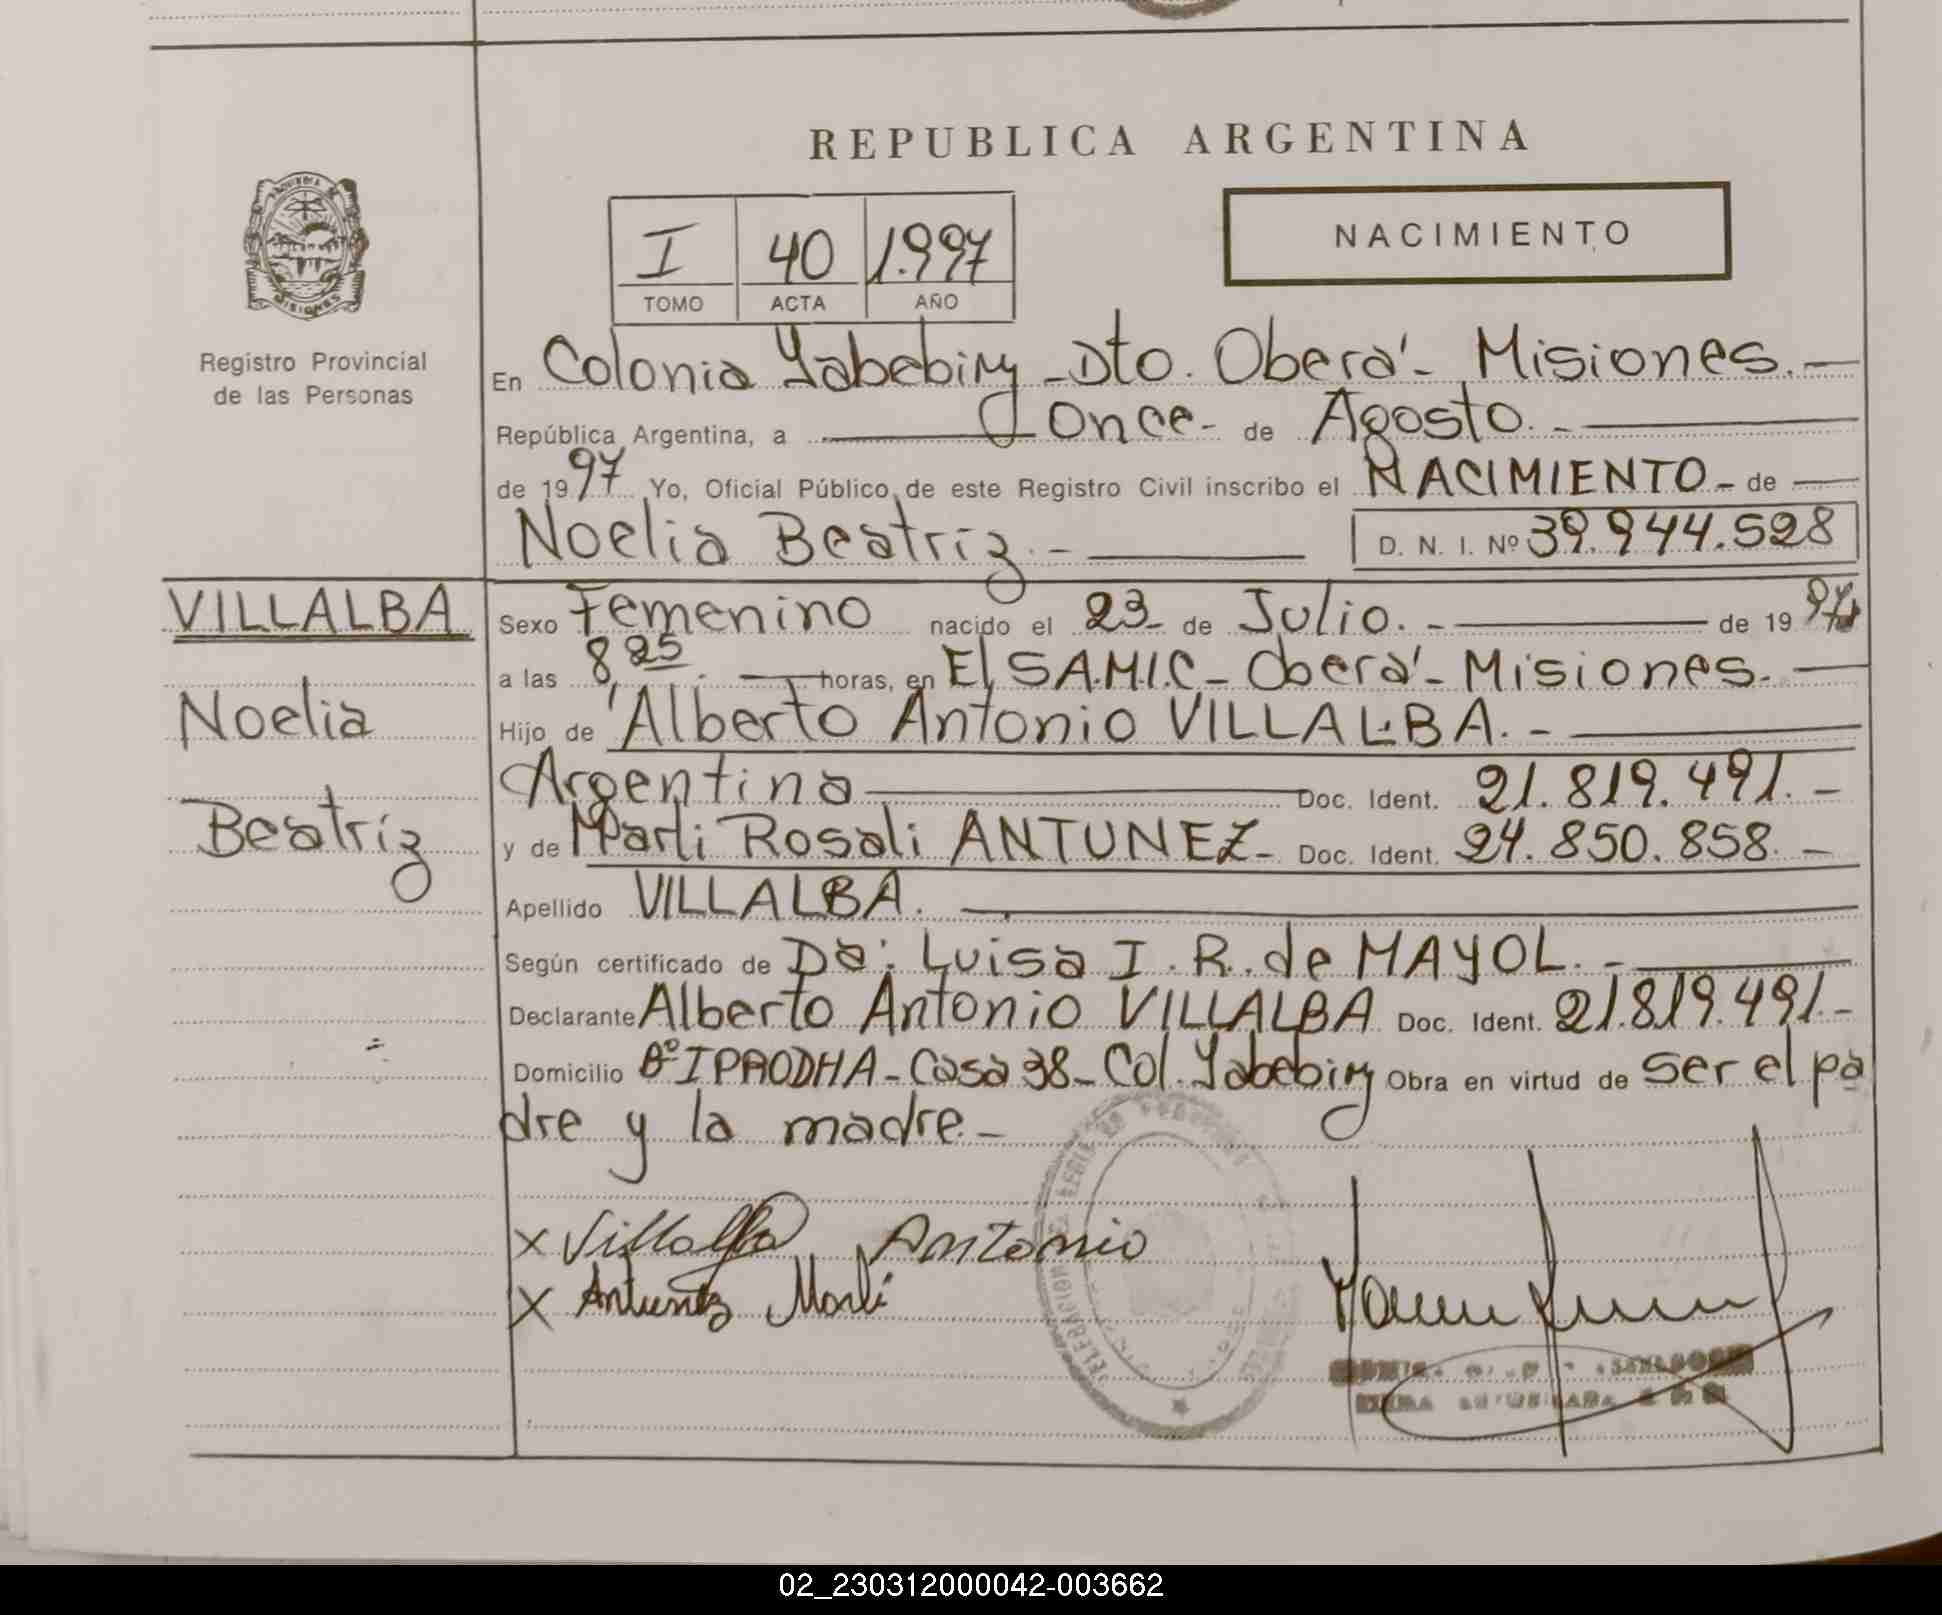 REPUBLICA ARGENTINA
NACIMIENTO
I 40 1.997
TOMO ACTA AÑO
MISIONES
Registro Provincial
de las Personas
En Colonia Yabebiry - Dto. Oberá - Misiones. -
República Argentina, a Once - de Agosto. -
de 1997 Yo, Oficial Público de este Registro Civil inscribo el NACIMIENTO - de
Noelia Beatriz. - D. N. I. Nº 39.944.528
VILLALBA
Noelia
Beatriz
Sexo Femenino nacido el 23 - de Julio. - de 1997
a las 8,25 horas, en El SA.M.I.C - Oberá - Misiones. -
Hijo de Alberto Antonio VILLALBA. -
Argentina Doc. Ident. 21.819.491. -
y de Marli Rosali ANTUNEZ - Doc. Ident. 24.850.858. -
Apellido VILLALBA.
Según certificado de Da: Luisa I. R. de MAYOL. -
Declarante Alberto Antonio VILLALBA Doc. Ident. 21.819.491. -
Domicilio Bº IPRODHA - Casa 38 - Col. Yabebiry Obra en virtud de ser el pa
dre y la madre. -
x Villalba Antonio
x Antunez Marli
02_230312000042-003662